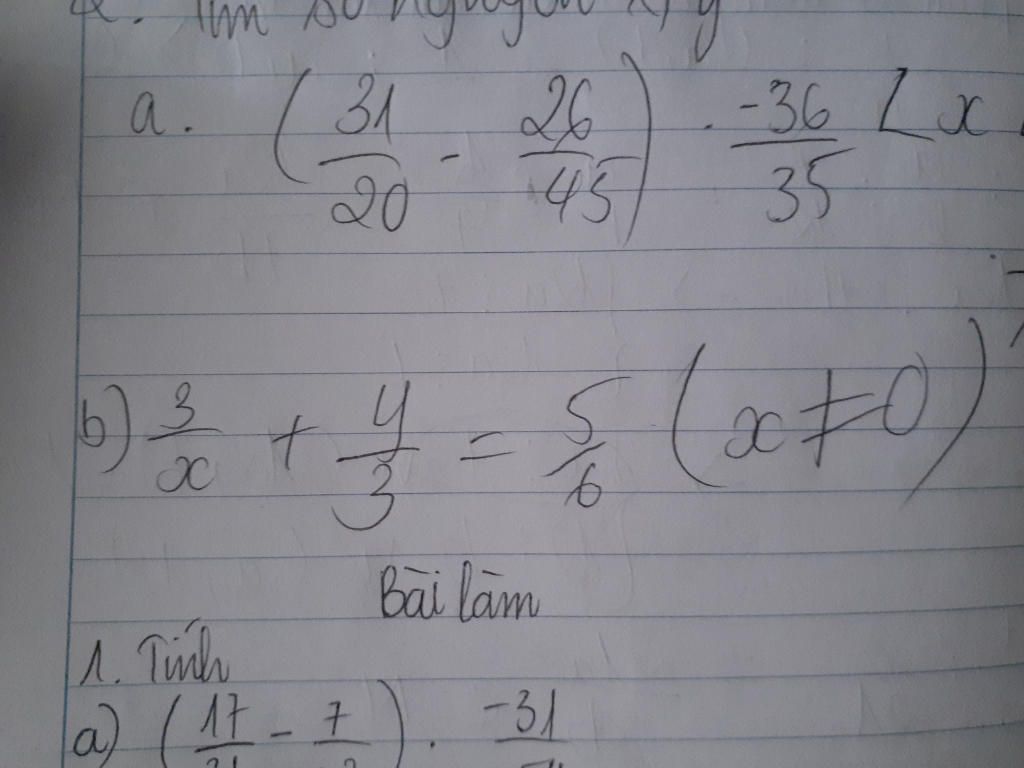 Tìm số nguyên x, y
a. (31/20 - 26/45) . -36/35 < x
b) 3/x + y/3 = 5/6 (x ≠ 0)
Bài làm
1. Tính
a) (17 - 7) . -31